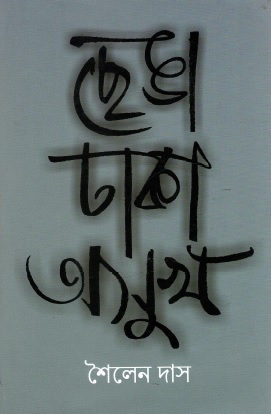 ছেঙা
ঢাকা
অসুখ
শৈলেন দাস